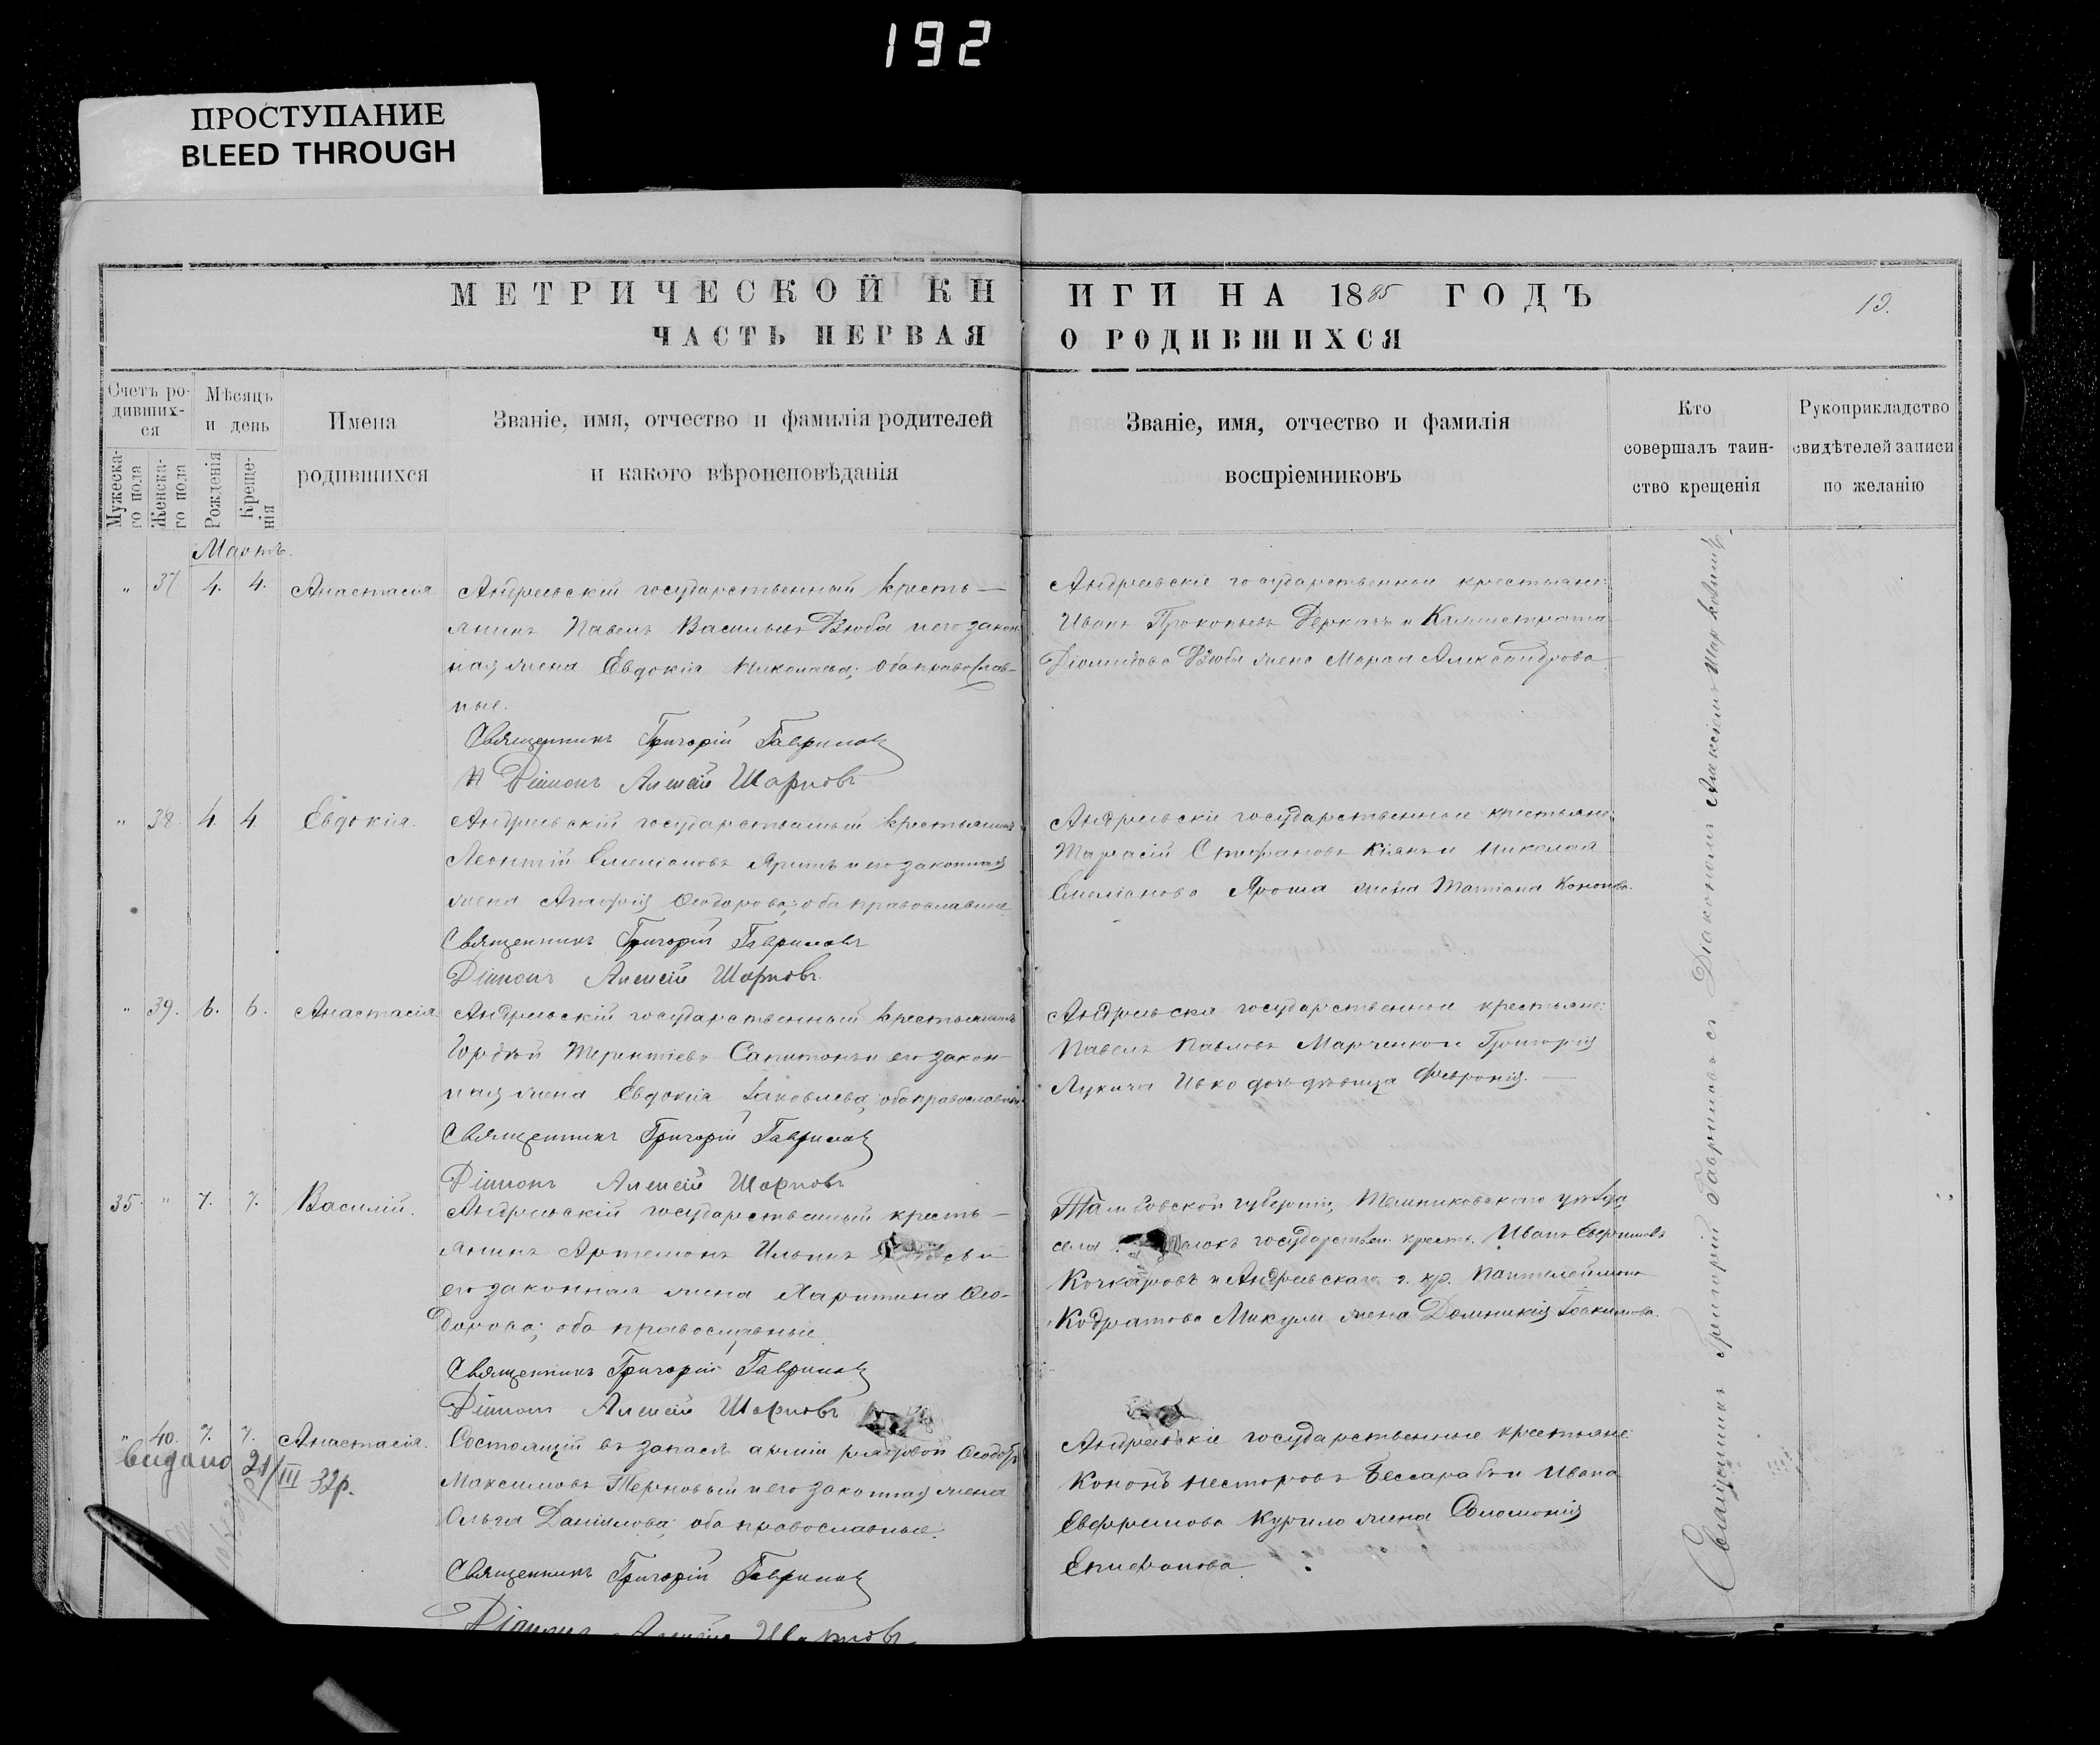 192
ПРОСТУПАНИЕ
BLEED THROUGH
МЕТРИЧЕСКОЙ КНИГИ НА 1885 ГОДЪ
19.
ЧАСТЬ ПЕРВАЯ О РОДИВШИХСЯ
Счетъ родивших-ся
Мужеска-го пола
Женска-го пола
Мѣсяцъ и день
Рожденія
Креще-нія
Имена родившихся
Званіе, имя, отчество и фамилія родителей
и какого вѣроисповѣданія
Званіе, имя, отчество и фамилія
воспріемниковъ
Кто
совершалъ таин-
ство крещенія
Рукоприкладство
свидѣтелей записи
по желанію
Мартъ.
" 37 4. 4. Анастасія
Андреевскій государственный кресть-
янинъ Павелъ Васильевъ Дзюба и его закон-
ная жена Евдокія Николаева; оба православ-
ные.
Священникъ Григорій Гавриловъ
И Діаконъ Алексій Шарковъ
Андреевскіе государственные крестьяне:
Иванъ Прокопьевъ Деркачъ и Каллистрата
Діомидова Дзюбы жена Марѳа Александрова
" 38. 4. 4. Евдокія.
Андреевскій государственный крестьянинъ
Леонтій Емеліановъ и его законная
жена Агафія Ѳеодорова; оба православные
Священникъ Григорій Гавриловъ
Діаконъ Алексій Шарковъ.
Андреевскіе государственные крестьяне:
Тарасій Стефановъ Кіянъ и Николая
Емеліанова Яроша жена Татіана Кононова.
" 39. 6. 6. Анастасія
Андреевскій государственный крестьянинъ
Гордѣй Терентіевъ Сапитонъ и его закон-
ная жена Евдокія Іаковлева; оба православные
Священникъ Григорій Гавриловъ
Діаконъ Алексій Шарковъ
Андреевскіе государственные крестьяне:
Павелъ Павловъ Марченко и Григорія
Лукича Ивко дочь дѣвица Февронія.
35. " 7. 7. Василій.
Андреевскій государственный кресть-
янинъ Артемонъ Ильинъ и
его законная жена Харитина Ѳео-
дорова; оба православные.
Священникъ Григорій Гавриловъ
Діаконъ Алексій Шарковъ
Тамбовской губерніи, Темниковскаго уѣзда,
села государствен. крест. Иванъ
Кочкаровъ и Андреевскаго г. кр. Пантелеимона
Кодратова Микулы жена Домникія Іоакимова.
" 40. 7. 7. Анастасія.
Видано 21/III 32р.
Состоящій въ запасѣ арміи рядовой Ѳеодоръ
Максимовъ Терновый и его законная жена
Ольга Даніилова; оба православные.
Священникъ Григорій Гавриловъ
Діаконъ Алексій Шарковъ
Андреевскіе государственные крестьяне:
Кононъ Несторовъ Бессарабъ и Ивана
Евфремова Курило жена Соломонія
Епифанова.
Священникъ Григорій Гавриловъ съ Діакономъ Алексіемъ Шарковымъ